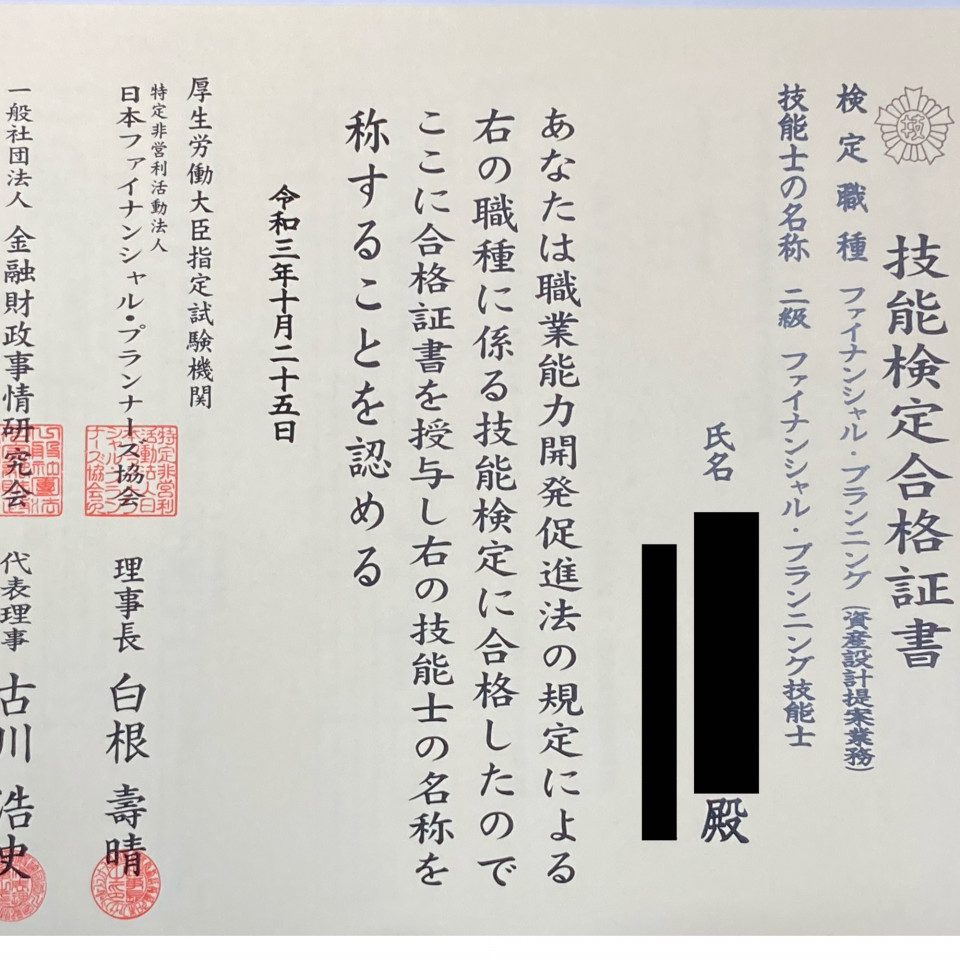 技能検定合格証書
検定職種 ファイナンシャル・プランニング(資産設計提案業務)
技能士の名称 二級 ファイナンシャル・プランニング技能士
氏名 殿
あなたは職業能力開発促進法の規定による
右の職種に係る技能検定に合格したので
ここに合格証書を授与し右の技能士の名称を
称することを認める
令和三年十月二十五日
厚生労働大臣指定試験機関
特定非営利活動法人
日本ファイナンシャル・プランナーズ協会 理事長 白根 壽晴
一般社団法人 金融財政事情研究会 代表理事 古川 浩史